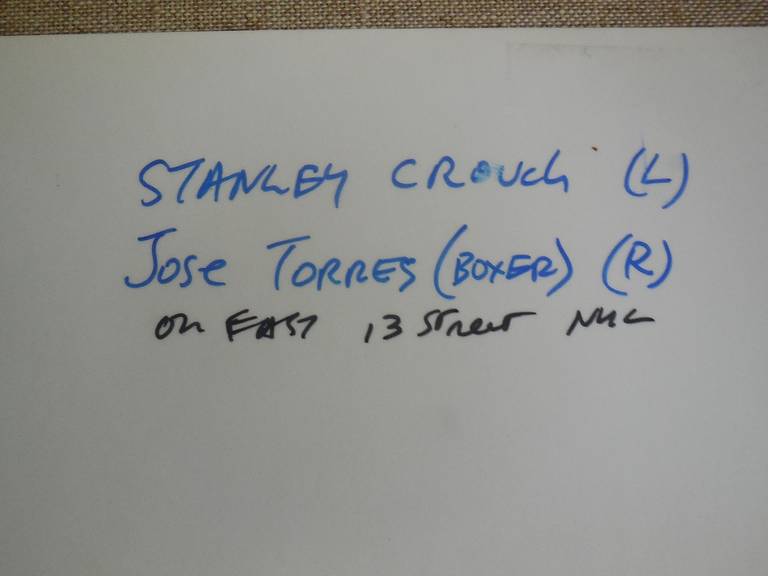 STANLEY CROUCH (L)
JOSE TORRES (BOXER) (R)
ON EAST 13 Street NYC